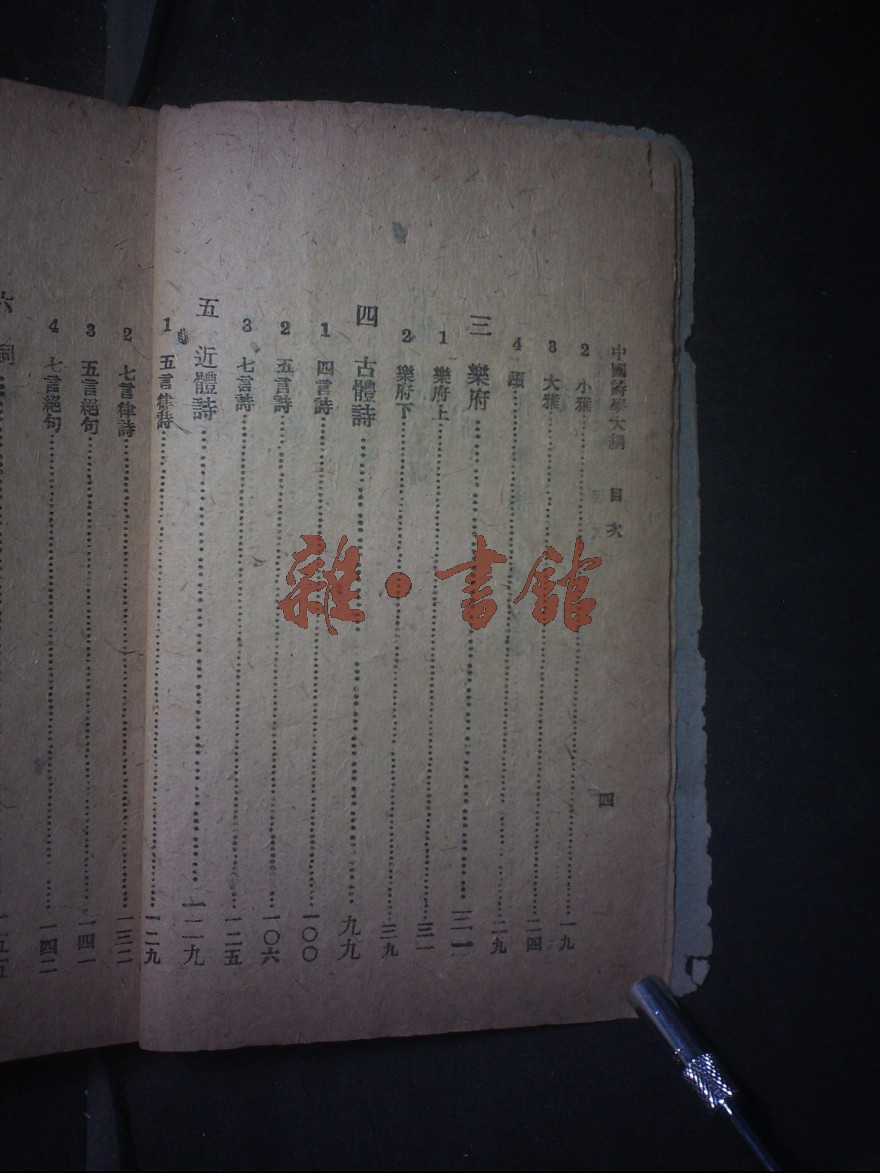 中國詩學大綱 目次 四
2 小雅 一九
3 大雅 二四
4 頌 二九
三 樂府 三一
1 樂府上 三一
2 樂府下 三九
四 古體詩 九九
1 四言詩 一〇〇
2 五言詩 一〇六
3 七言詩 一二五
五 近體詩 一二九
1 五言律詩 一二九
2 七言律詩 一三二
3 五言絕句 一四一
4 七言絕句 一四二
六 詞
雜·書館